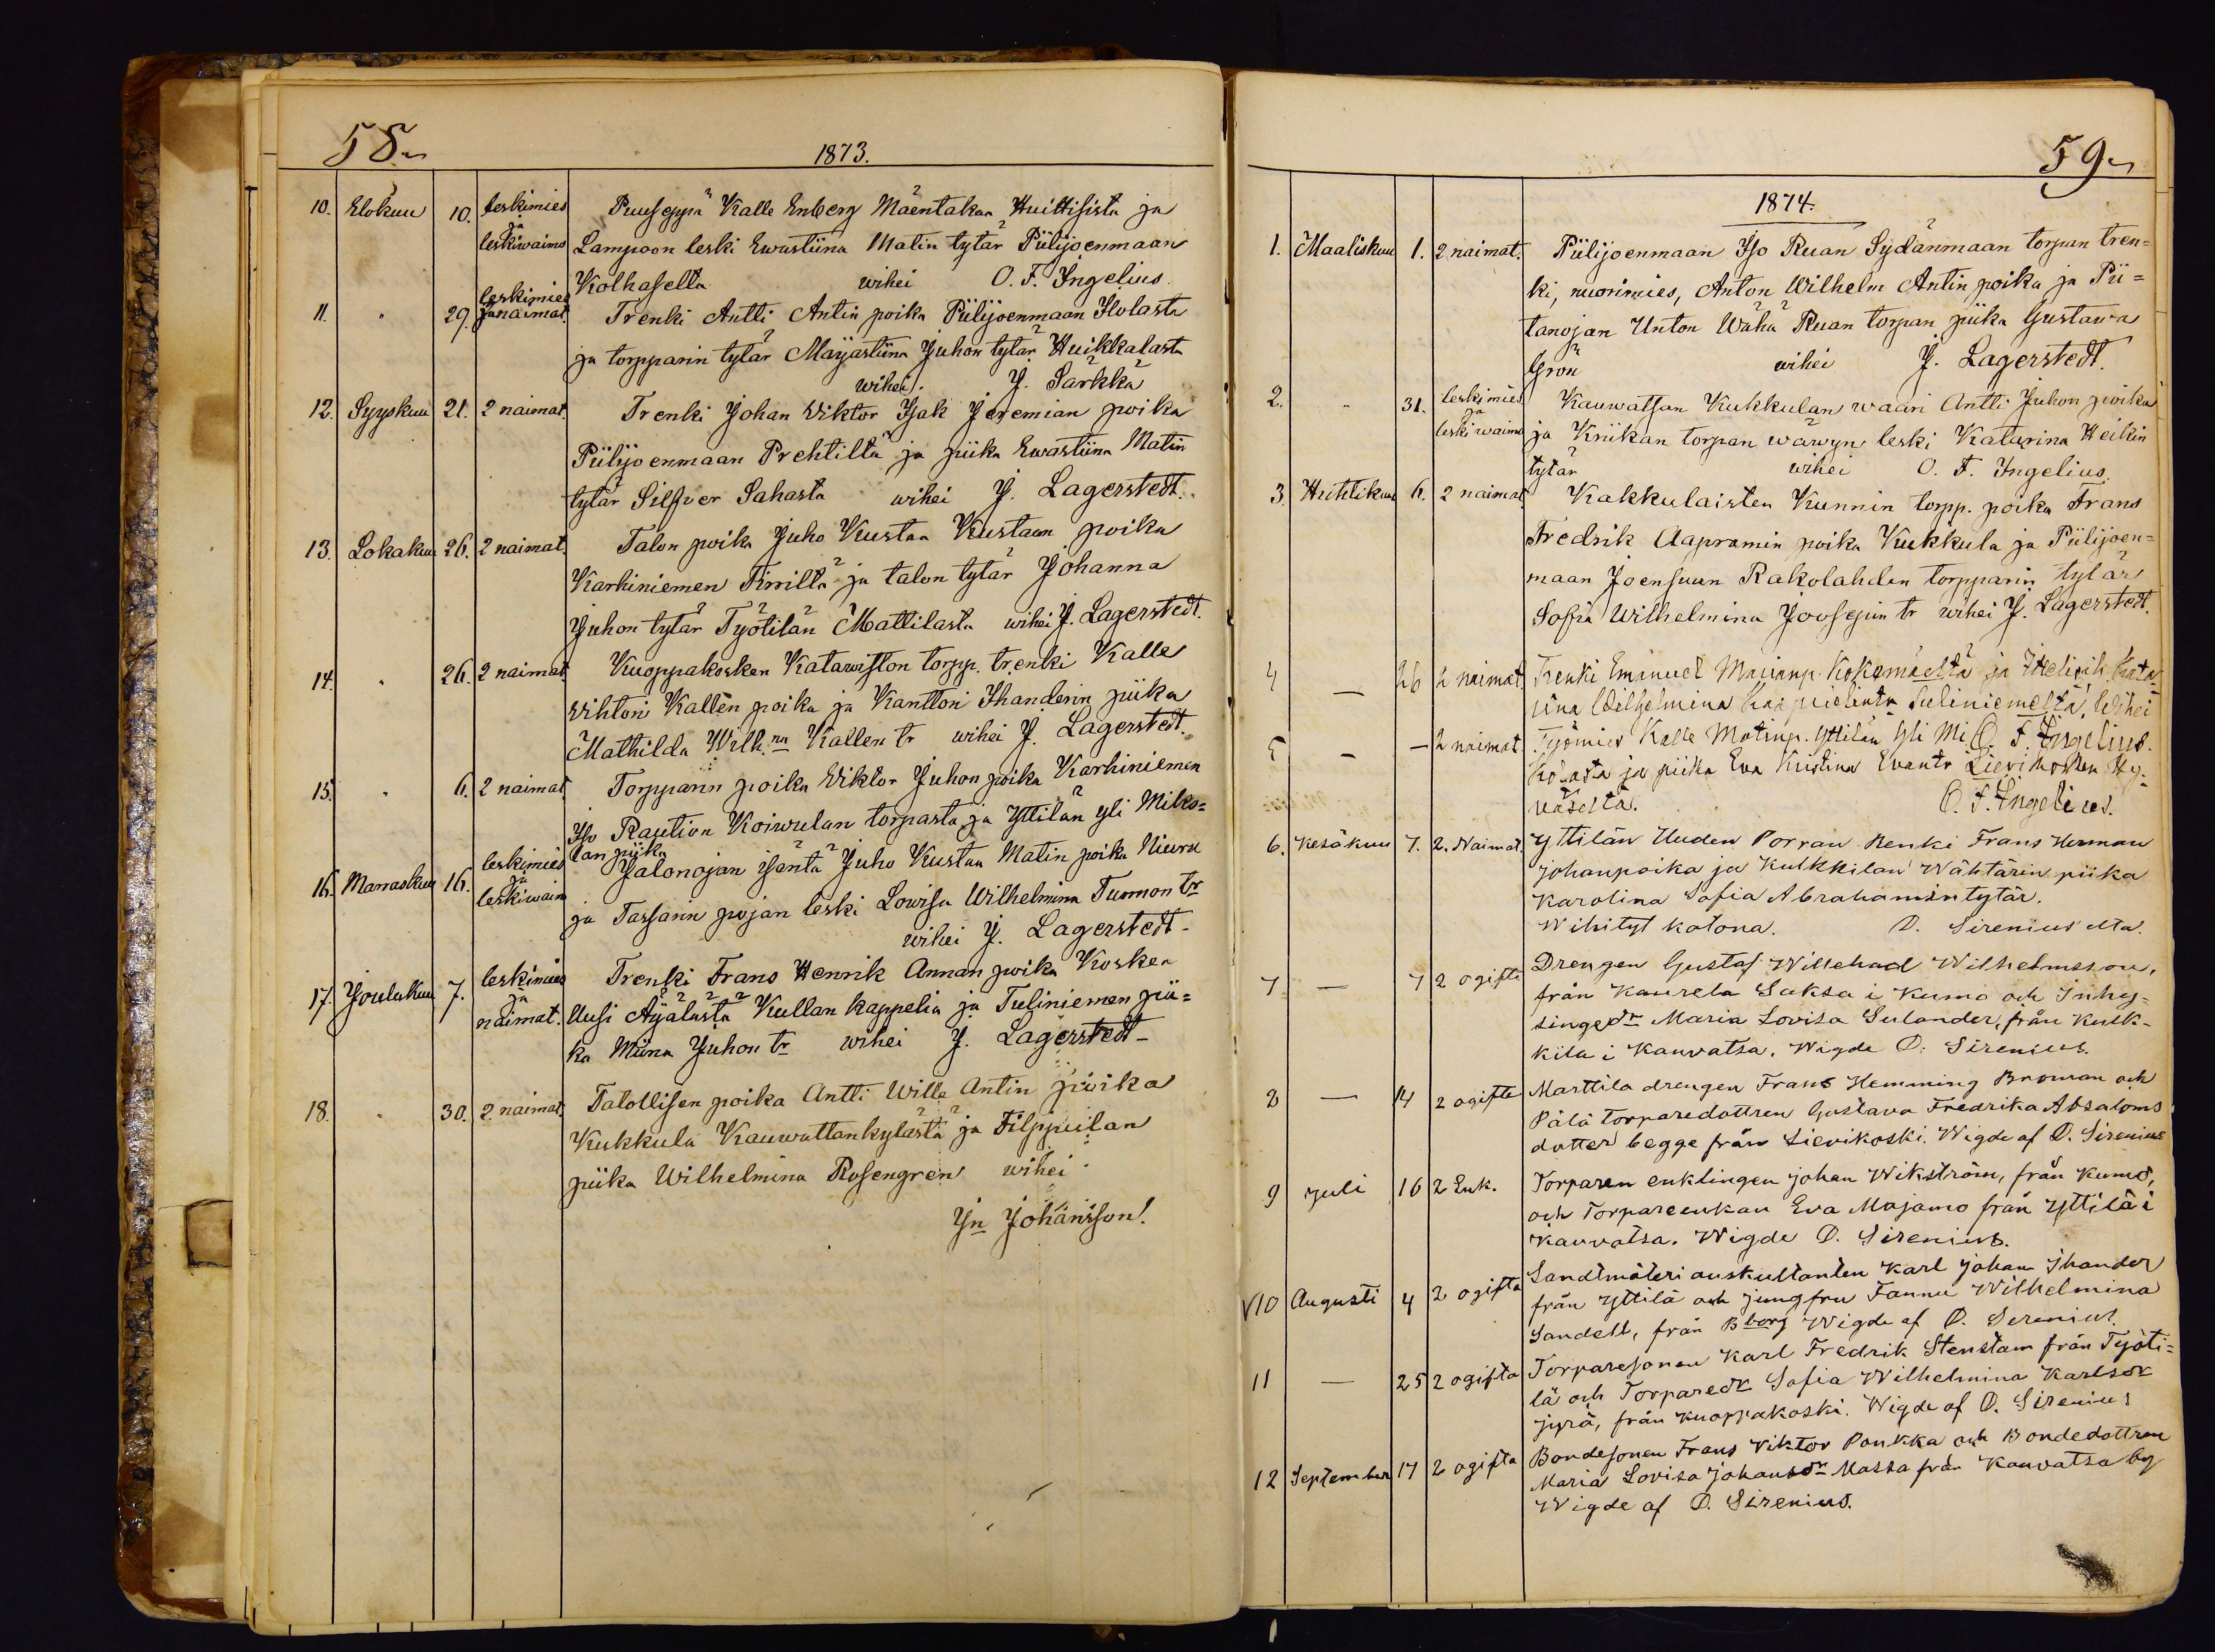 58
1873.
10. Elokuu 10. leskimies ja leskiwaimo Puuseppä Kalle Enberg Mäentakaa Huittisista ja
Lampoon leski Ewastiina Matin tytär Piilijoenmaan
Kolhaselta wihei O. F. Ingelius.
11. " 29. leskimies ja naimat. Trenki Antti Antin poika Piilijoenmaan Holasta
ja torpparin tytär Maijastiina Juhon tytär Huikkalasta
wihei. J. Särkkä
12. Syyskuu 21. 2 naimat. Trenki Johan Viktor Isak Jeremian poika
Piilijoenmaan Prehtiltä ja piika Ewastiina Matin
tytär Silfver Sahasta wihei J. Lagerstedt.
13. Lokakuu 26. 2 naimat. Talon poika Juho Kustaa Kustaan poika
Karhiniemen Firriltä ja talon tytär Johanna
Juhon tytär Työtilän Mattilasta wihei J. Lagerstedt.
14. " 26. 2 naimat. Kuoppakosken Katawiston torpp. trenki Kalle
Vihtori Kallen poika ja Kanttori Ihanderin piika
Mathilda Wilh:na Kallen tr wihei J. Lagerstedt.
15. " 6. 2 naimat. Torpparin poika Viktor Juhon poika Karhiniemen
Iso Raution Koiwulan torpasta ja Yttilän yli Miko=
lan piika
16. Marraskuu 16. leskimies ja leskiwaim Jalonojan isäntä Juho Kustaa Matin poika
ja Tassarin pojan leski Lowisa Wilhelmina Tuomon tr
wihei J. Lagerstedt.
17. Joulukuu 7. leskimies ja naimat. Trenki Frans Henrik Annan poika Kosken
Uusi Äijälästä Kullan kappelia ja Tuliniemen pii=
ka Miina Juhon tr wihei J. Lagerstedt.
18. " 30. 2 naimat. Talollisen poika Antti Wille Antin poika
Kukkula Kauwattankylästä ja Filppuilan
piika Wilhelmina Rosengren wihei
Jn Johansson!
59
1874.
1. Maaliskuu 1. 2 naimat. Piilijoenmaan Iso Ruan Sydänmaan torpan tren=
ki, nuorimies, Anton Wilhelm Antin poika ja Pii=
tanojan Unton Wähä Ruan torpan piika Gustawa
Grön wihei J. Lagerstedt.
2. " 31. leskimies ja leskiwaimo Kauwatsan Kukkulan waari Antti Juhon poika
ja Kriikan torpan wäwyn leski Katarina Heikin
tytär wihei O. F. Ingelius.
3. Huhtikuu 6. 2 naimat. Kakkulaisten Kunnin torpp. poika Frans
Fredrik Aapramin poika Kukkula ja Piilijoen=
maan Joensuun Rakolahden torpparin tytär
Sofia Wilhelmina Joosepin tr wihei J. Lagerstedt.
4 — 26 2 naimat. Renki Emanuel Kokemäeltä ja Itsellisih. Kata
Wilhelmina Tuliniemeltä, Wihei
5 — — 2 naimat. Työmies Kalle Matinp. Yttilän Yli Mi O. F. Ingelius.
kolasta ja piika Eva Kristina Evantr Lievikosken Hy-
väseltä. O. F. Ingelius.
6. Kesäkuu 7. 2. Naimat. Yttilän Uuden Porran Renki Frans Herman
Johanpoika ja Kulkkilan Wähtärin piika
Karolina Sofia Abrahamintytär.
Wihityt kotona. D. Sirenius'elta.
7 — 7 2 ogifta Drengen Gustaf Willehad Wilhelmsson,
från Kaurela Saksa i Kumo och Inhy-
singedr Maria Lovisa Sulander, från Kulk-
kila i Kauvatsa. Wigde D. Sirenius.
8 — 14 2 ogifta Marttila drengen Frans Hemming Broman och
Pälä torparedottren Gustava Fredrika Absaloms
dotter begge från Lievikoski. Wigde af D. Sirenius
9 Juli 16 2 Enk. Torparen enklingen Johan Wikström, från Kumo,
och Torpareenkan Eva Majamo från Yttilä i
Kauvatsa. Wigde D. Sirenius.
10 Augusti 4 2 ogifta Landtmäteri auskultanten Karl Johan Ihander
från Yttilä och jungfru Fanny Wilhelmina
Sandell, från Bborg Wigde af D. Sirenius.
11 — 25 2 ogifta Torparesonen Karl Fredrik Stenstam från Työti=
lä och Torparedr Sofia Wilhelmina Karlsdr
Jyrä, från Kuoppakoski. Wigde af D. Sirenius
12 September 17 2 ogifta Bondesonen Frans Viktor Poukka och Bondedottren
Maria Lovisa Johansdr Massa från Kauvatsa by
Wigde af D. Sirenius.